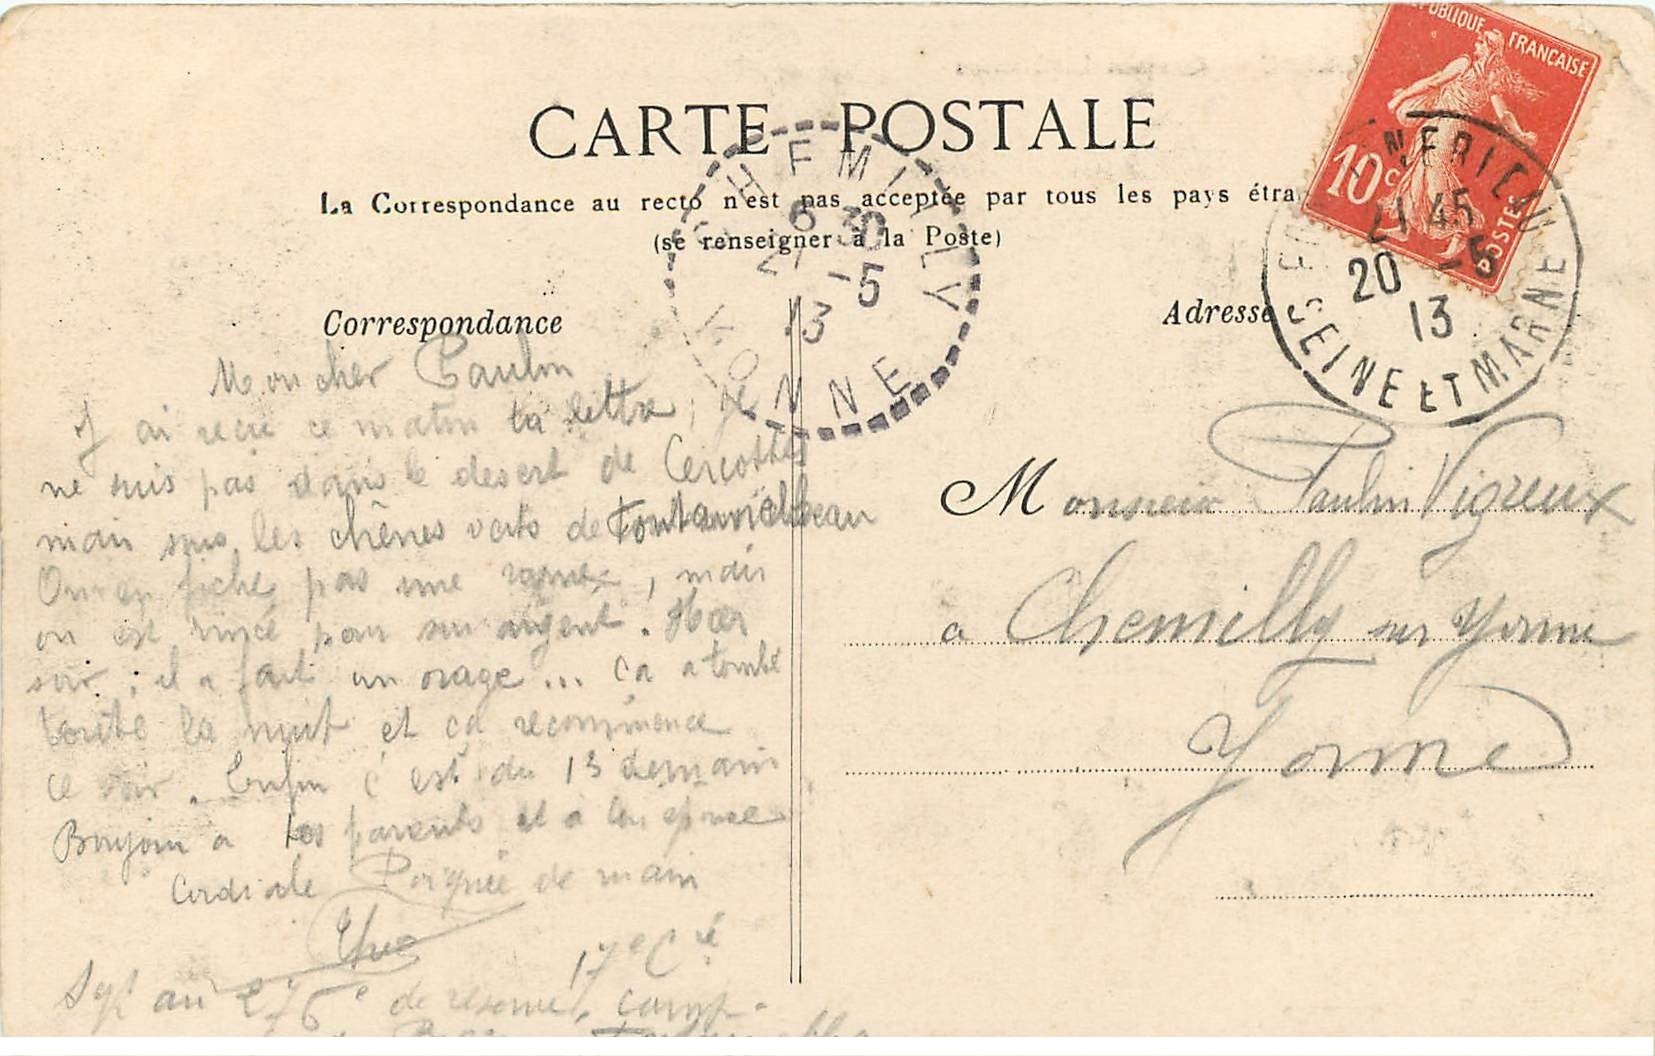 CARTE POSTALE
La Correspondance au recto n'est pas acceptée par tous les pays étra
(se renseigner à la Poste)
RÉPUBLIQUE FRANÇAISE
10 c
POSTES
21 45
20 -5
13
SEINE ET MARNE
CHEMILLY
6 30
21 -5
13
YONNE
Correspondance
Mon cher Paulin
J ai reçu ce matin ta lettre, je
ne suis pas dans le desert de Cercottes
mais sous les chênes verts de Fontainebleau
On en fiche pas une rame, mais
on est rincé pour son argent. Hier
soir, il a fait un orage... ca a tombé
toute la nuit et ca recommence
ce soir. Enfin c'est du 13 demain
Bonjour a tes parents et a ton epouse
Cordiale Poignée de main
Sgt au 276e de réserve, 17e Cie
camp
Adresse
Monsieur Paulin Vigreux
a Chemilly sur Yonne
Yonne